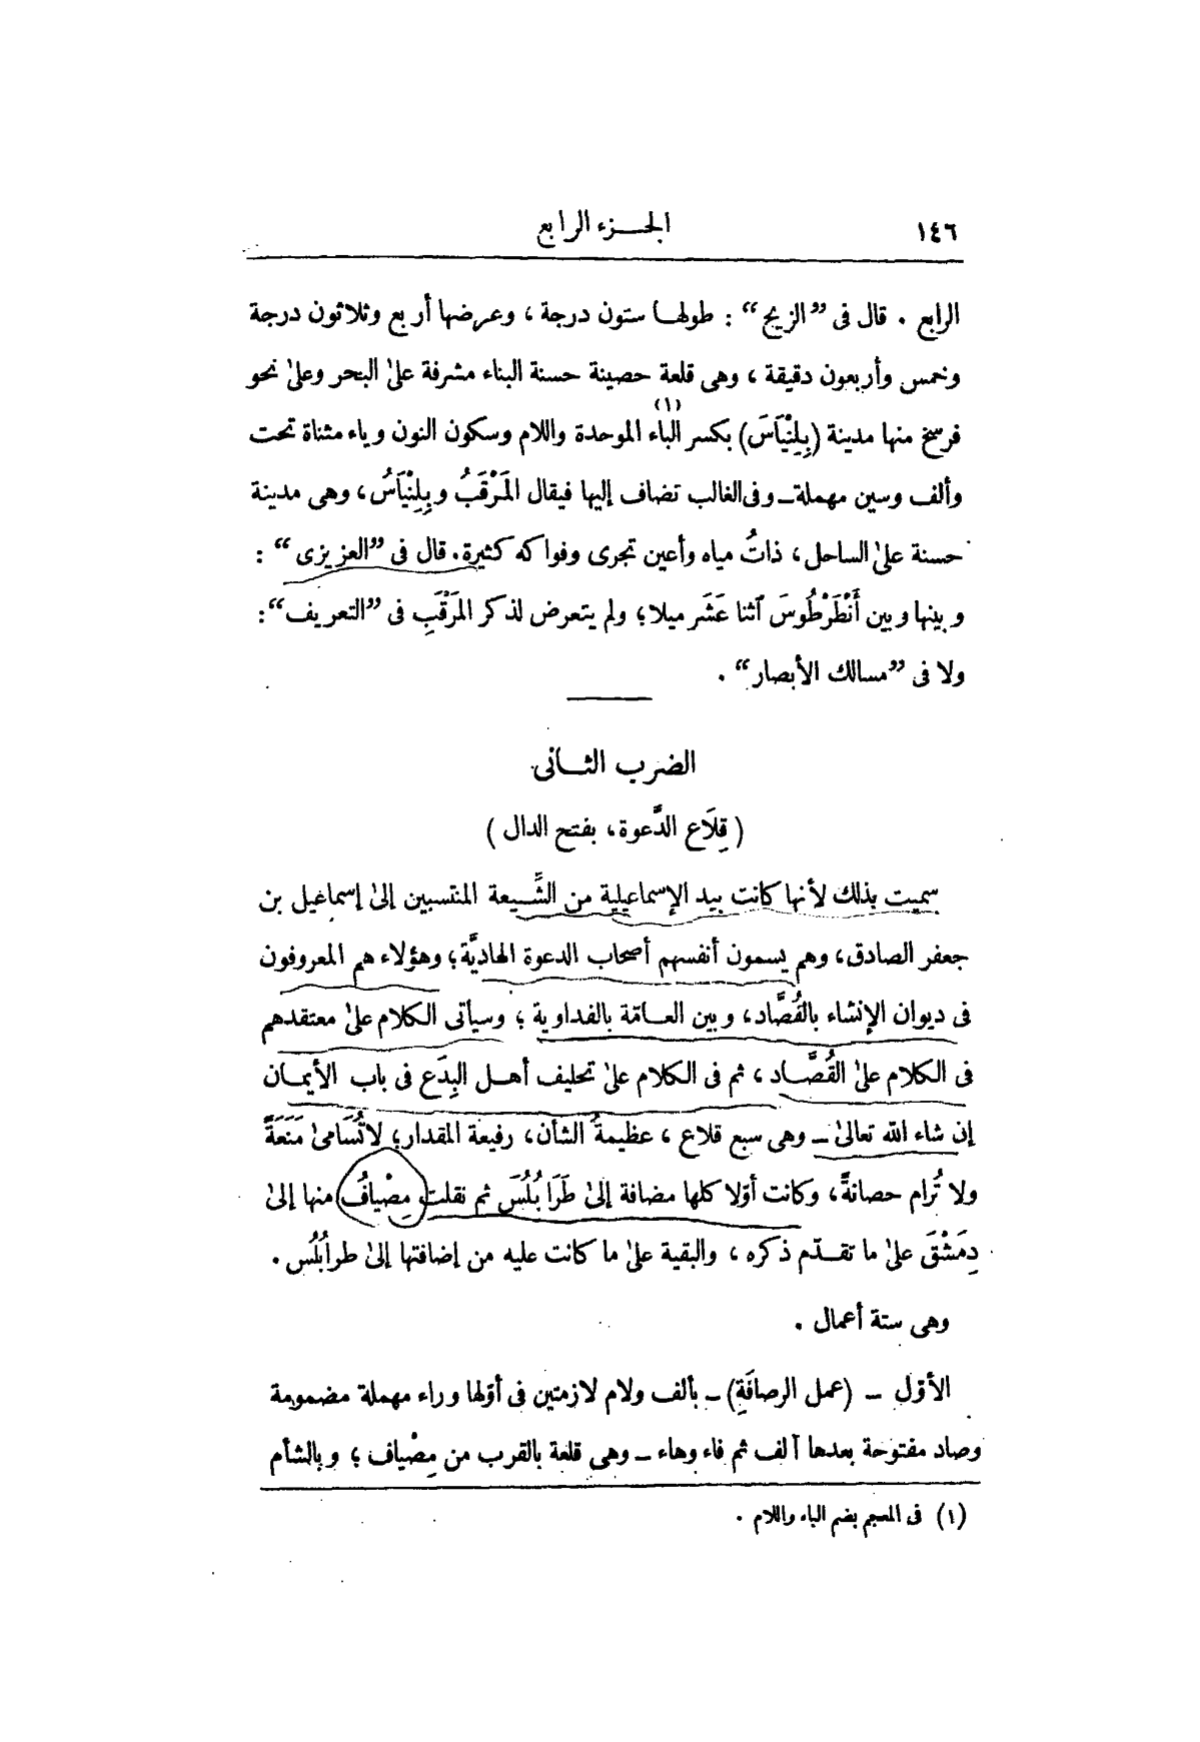 ١٤٦
الجزء الرابع
الرابع . قال فى "الزيج" : طولها ستون درجة ، وعرضها أربع وثلاثون درجة
وخمس وأربعون دقيقة ، وهى قلعة حصينة حسنة البناء مشرفة على البحر وعلى نحو
فرسخ منها مدينة (بِلِنْيَاسَ) بكسر الباء (١) الموحدة واللام وسكون النون وياء مثناة تحت
وألف وسين مهملة ـ وفى الغالب تضاف إليها فيقال المَرْقَبُ وبِلِنْيَاسُ ، وهى مدينة
حسنة على الساحل ، ذاتُ مياه وأعين تجرى وفواكه كثيرة . قال فى "العزيزى" :
وبينها وبين أَنْطَرْطُوسَ آثنا عَشَر ميلا ؛ ولم يتعرض لذكر المَرْقَبِ فى "التعريف" :
ولا فى "مسالك الأبصار" .
الضرب الثانى
( قِلَاع الدَّعوة ، بفتح الدال )
سميت بذلك لأنها كانت بيد الإسماعيلية من الشِّيعة المنتسبين إلى إسماعيل بن
جعفر الصادق ، وهم يسمون أنفسهم أصحاب الدعوة الهاديَّة ؛ وهؤلاء هم المعروفون
فى ديوان الإنشاء بالقُصَّاد ، وبين العامّة بالفداوية ؛ وسيأتى الكلام على معتقدهم
فى الكلام على القُصَّاد ، ثم فى الكلام على تحليف أهل البِدَع فى باب الأيمان
إن شاء الله تعالى ـ وهى سبع قلاع ، عظيمةُ الشأن ، رفيعة المقدار ؛ لا تُسَامى مَنَعَةً
ولا تُرام حصانةً ، وكانت أوّلا كلها مضافة إلى طَرَابُلُسَ ثم نقلت مِصْيافُ منها إلى
دِمَشْقَ على ما تقدّم ذكره ، والبقية على ما كانت عليه من إضافتها إلى طرابُلُس .
وهى ستة أعمال .
الأوّل ـ (عمل الرصافَةِ) ـ بألف ولام لازمتين فى أوّلها وراء مهملة مضمومة
وصاد مفتوحة بعدها آلف ثم فاء وهاء ـ وهى قلعة بالقرب من مِصْياف ؛ وبالشأم
(١) فى المعجم بضم الباء واللام .